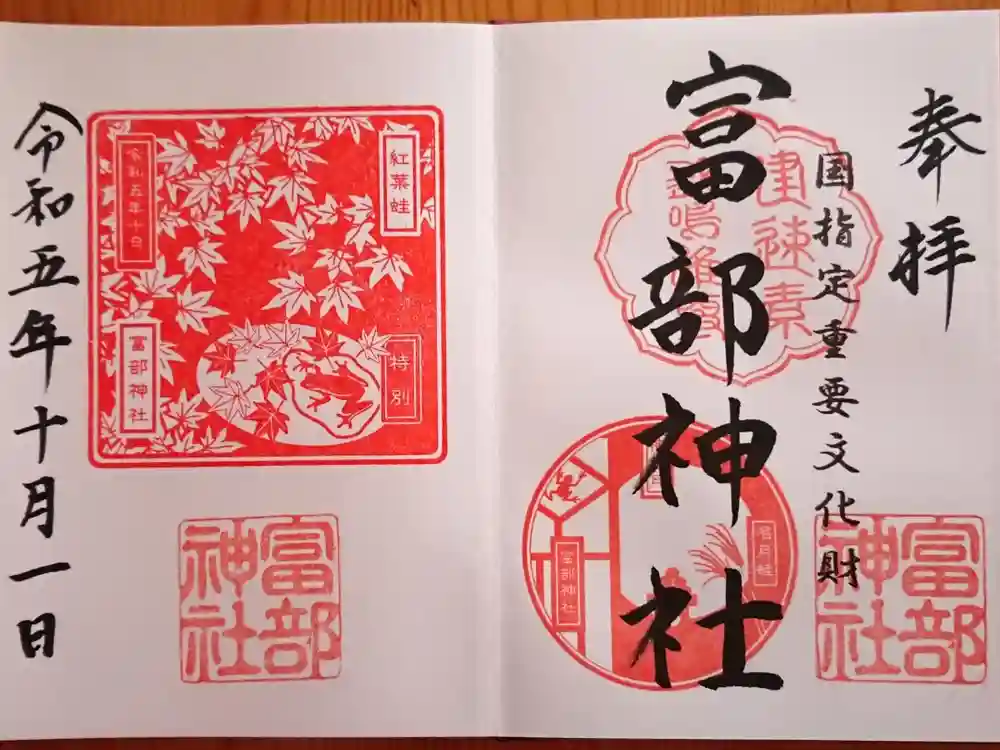 奉拝
国指定重要文化財
富部神社
富部神社
名月蛙
富部神社
紅葉蛙
特別
令和五年十月
富部神社
富部神社
令和五年十月一日